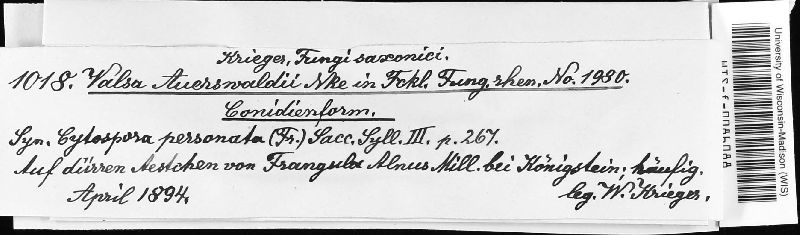 Krieger, Fungi saxonici.
1018. Valsa Auerswaldii Nke in Fckl. Fung. rhen. No. 1980.
Conidienform.
Syn. Cytospora personata (Fr.) Sacc. Syll. III. p. 267.
Auf dürren Aestchen von Frangula Alnus Mill. bei Königstein; häufig.
April 1894. leg. W. Krieger.
University of Wisconsin-Madison (WIS)